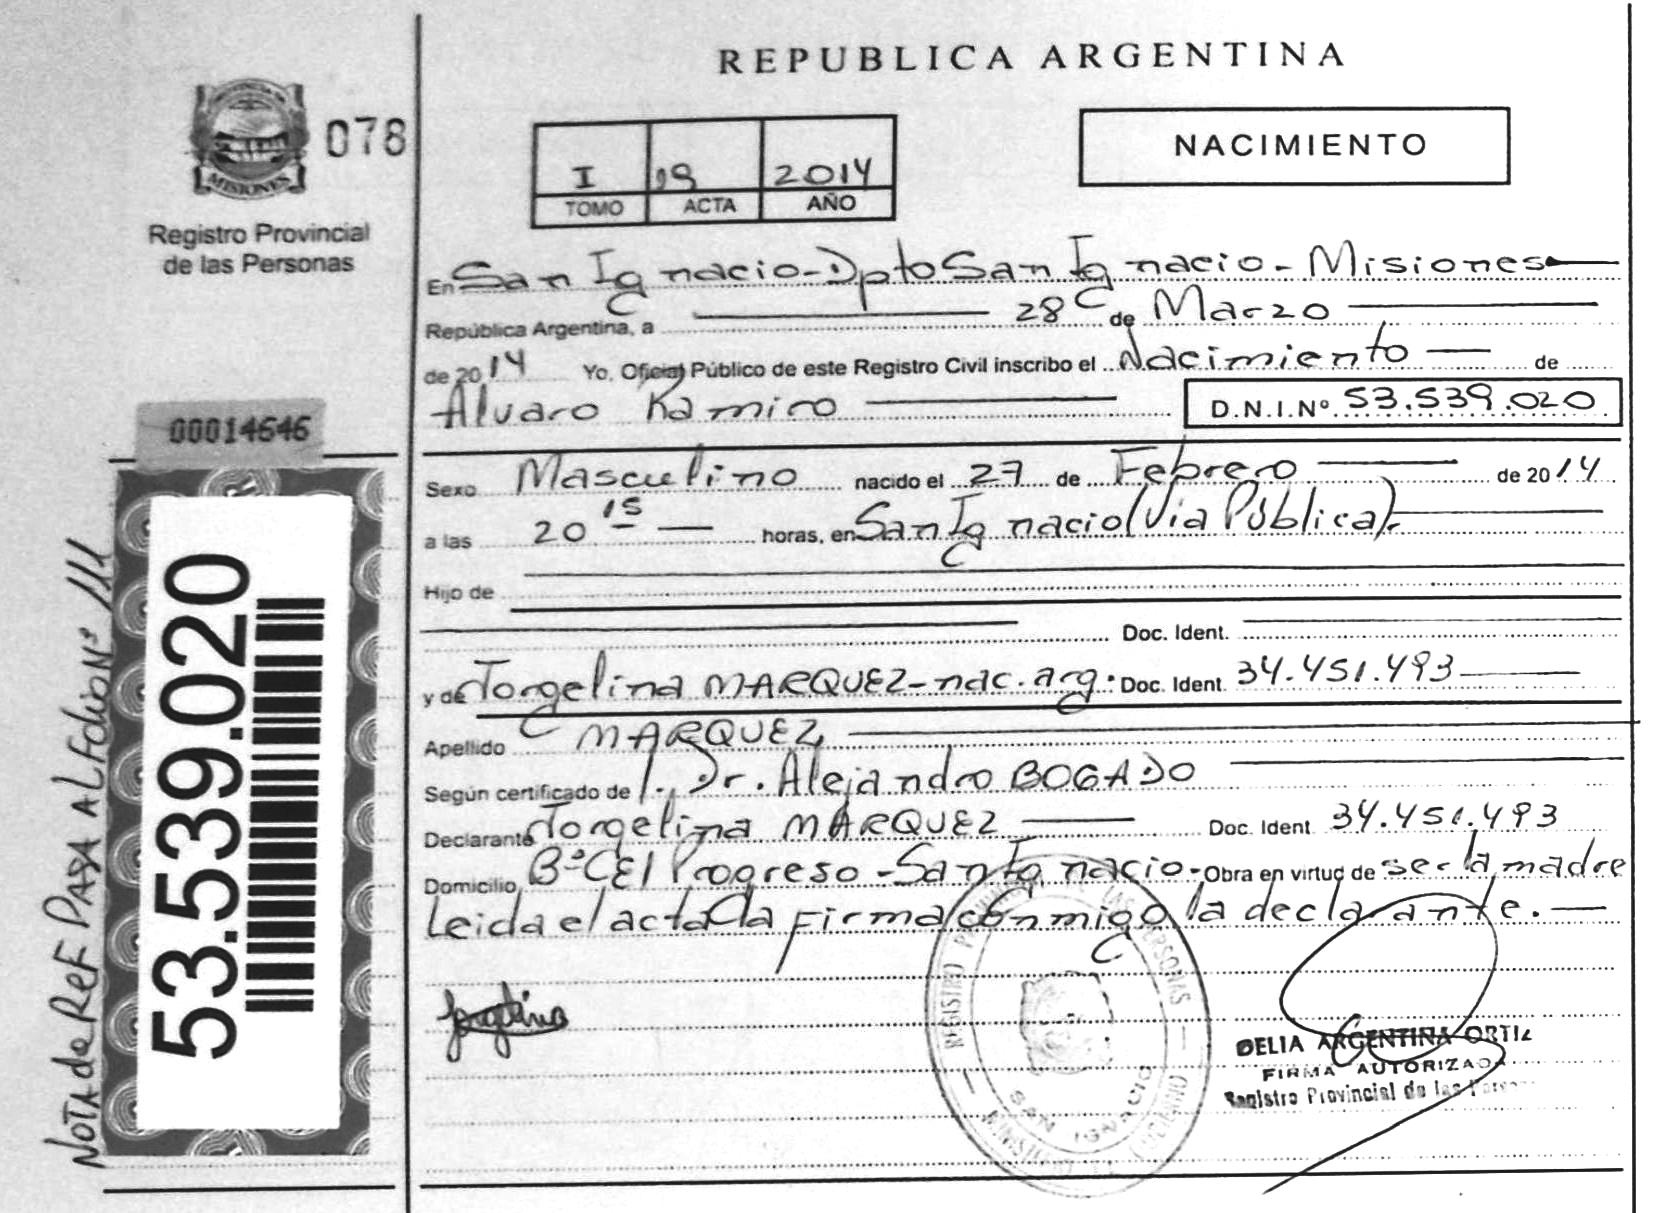 REPUBLICA ARGENTINA
MISIONES
078
Registro Provincial
de las Personas
I 19 2014
TOMO ACTA AÑO
NACIMIENTO
En San Ignacio-Dpto San Ignacio-Misiones
República Argentina, a 28 de Marzo
de 2014 Yo, Oficial Público de este Registro Civil inscribo el Nacimiento de
Alvaro Ramiro D.N.I.Nº 53.539.020
00014646
53.539.020
NOTA de ReF PASA AL Folio Nº 111
Sexo Masculino nacido el 27 de Febrero de 2014
a las 20 15 horas, en San Ignacio (Via Pública).
Hijo de
Doc. Ident.
y de Jorgelina MARQUEZ-nac. arg. Doc. Ident. 34.451.493
Apellido MARQUEZ
Según certificado de Dr. Alejandro BOGADO
Declarante Jorgelina MARQUEZ Doc. Ident. 34.451.493
Domicilio Bº El Progreso-San Ignacio-Obra en virtud de ser la madre
Leida el acta la firma conmigo la declarante.
Jorgelina
REGISTRO PERSONAS
SAN IGNACIO
DELIA ARGENTINA ORTIZ
FIRMA AUTORIZADA
Registro Provincial de las Personas